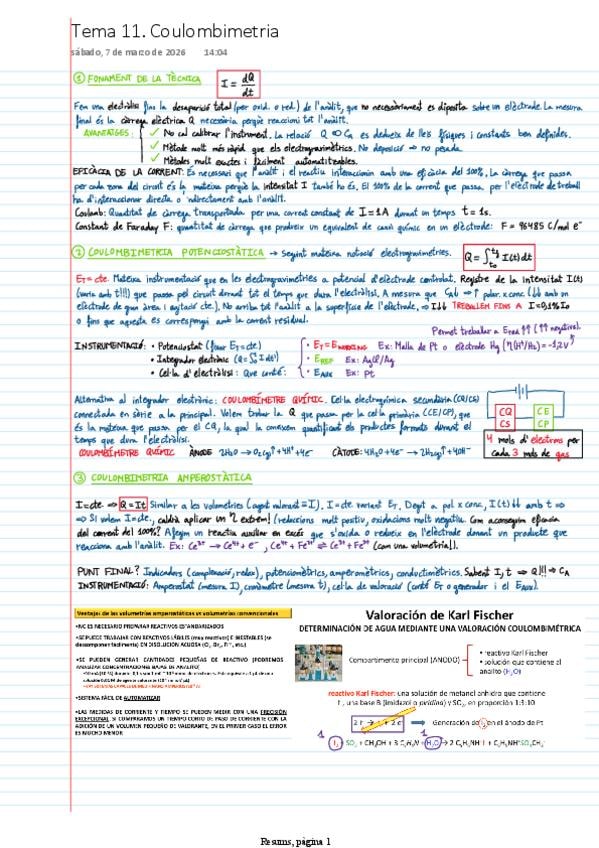 Tema 11. Coulombimetria
sábado, 7 de marzo de 2026 14:04
① FONAMENT DE LA TÈCNICA I = dQ/dt
Fem una electròlisi fins la desaparició total (per oxid. o red.) de l'anàlit, que no necessàriament es diposita sobre un elèctrode. La mesura
final és la càrrega elèctrica Q necessària perquè reaccioni tot l'anàlit.
AVANTATGES:
✓ No cal calibrar l'instrument. La relació Q ⇔ CA es dedueix de lleis físiques i constants ben definides.
✓ Mètode molt més ràpid que els electrogravimètrics. No deposició → no pesada.
✓ Mètodes molt exactes i fàcilment automatitzables.
EFICÀCIA DE LA CORRENT: És necessari que l'anàlit i el reactiu interaccionin amb una eficàcia del 100%. La càrrega que passa
per cada zona del circuit és la mateixa perquè la intensitat I també ho és. El 100% de la corrent que passa per l'electrode de treball
ha d'interaccionar directa o indirectament amb l'anàlit.
Coulomb: Quantitat de càrrega transportada per una corrent constant de I = 1A durant un temps t = 1s.
Constant de Faraday F: quantitat de càrrega que produeix un equivalent de canvi químic en un elèctrode: F = 96485 C/mol e⁻
② COULOMBIMETRIA POTENCIOSTÀTICA → Seguint mateixa notació electrogravimetries.
ET = cte. Mateixa instrumentació que en les electrogravimetries a potencial d'elèctrode controlat. Registre de la intensitat I(t)
(varia amb t!!!) que passa pel circuit durant tot el temps que dura l'electròlisi. A mesura que
No arriba tot l'anàlit a la superfície de l'elèctrode, ⇒ I↓↓ TREBALLEM FINS A I=0,1% I₀
o fins que aquesta es correspongui amb la corrent residual.
INSTRUMENTACIÓ:
• Potenciostat (fixar ET = cte)
• Integrador electrònic
• Cel·la d'electròlisi: Que conté:
• ET = EWORKING Ex: Malla de Pt o elèctrode Hg
• EREF Ex: Ag/AgCl
• EAUX Ex: Pt
Alternativa al integrador electrònic: COULOMBÍMETRE QUÍMIC. Cel·la electroquímica secundària (CQ/CS)
connectada en sèrie a la principal. Volem trobar la Q que passa per la cel·la primària (CE/CP), que
és la mateixa que passa per el CQ, la qual la coneixem quantificant els productes formats durant el
temps que dura l'electròlisi.
CQ CS
CE CP
4 mols d'electrons per
cada 3 mols de gas
COULOMBÍMETRE QUÍMIC ÀNODE 2H₂O → O₂(g)↑ + 4H⁺ + 4e⁻ CÀTODE: 4H₂O + 4e⁻ → 2H₂(g)↑ + 4OH⁻
③ COULOMBIMETRIA AMPEROSTÀTICA
I = cte. ⇒ Q = It Similar a les volumetries (agent valorant ≡ I). I = cte variant ET. Degut a pol x conc, I(t)↓↓ amb t ⇒
⇒ Si volem I = cte, caldrà aplicar un η extrem! (reduccions molt positiv, oxidacions molt negatiu. Com aconseguim eficàcia
del corrent del 100%? Afegim un reactiu auxiliar en excés que s'oxida o redueix en l'elèctrode donant un producte que
reacciona amb l'anàlit. Ex: Ce³⁺ → Ce⁴⁺ + e⁻, Ce⁴⁺ + Fe²⁺ ⇌ Ce³⁺ + Fe³⁺ (com una volumetria!).
PUNT FINAL? Indicadors (complexació, redox), potenciomètrics, amperomètrics, conductimètrics. Sabent I, t ⇒ Q!!! ⇒ CA
INSTRUMENTACIÓ: Amperostat (mesura I), cronòmetre (mesura t), cel·la de valoració (conté ET o generador i el EAUX).
Ventajas de las volumetrías amperostáticas vs volumetrías convencionales
•NO ES NECESARIO PREPARAR REACTIVOS ESTANDARIZADOS
•SE PUEDE TRABAJAR CON REACTIVOS LÁBILES (muy reactivos) E INESTABLES (se
descomponen fácilmente) EN DISOLUCIÓN ACUOSA
•SE PUEDEN GENERAR CANTIDADES PEQUEÑAS DE REACTIVO (PODREMOS
ANALIZAR CONCENTRACIONES BAJAS DE ANALITO)
•SISTEMA FÁCIL DE AUTOMATIZAR
•LAS MEDIDAS DE CORRIENTE Y TIEMPO SE PUEDEN MEDIR CON UNA PRECISIÓN
EXCEPCIONAL SI COMPARAMOS UN TIEMPO CORTO DE PASO DE CORRIENTE CON LA
ADICIÓN DE UN VOLUMEN PEQUEÑO DE VALORANTE, EN EL PRIMER CASO EL ERROR
ES MUCHO MENOR
Valoración de Karl Fischer
DETERMINACIÓN DE AGUA MEDIANTE UNA VALORACIÓN COULOMBIMÉTRICA
Compartimento principal (ANODO)
• reactivo Karl Fischer
• solución que contiene el
analito (H₂O)
reactivo Karl Fischer: una solución de metanol anhidro que contiene
I⁻, una base B (imidazol o piridina) y SO₂, en proporción 1:3:10
2 I⁻ → I₂ + 2 e⁻ Generación de I₂ en el ánodo de Pt
Resums, página 1